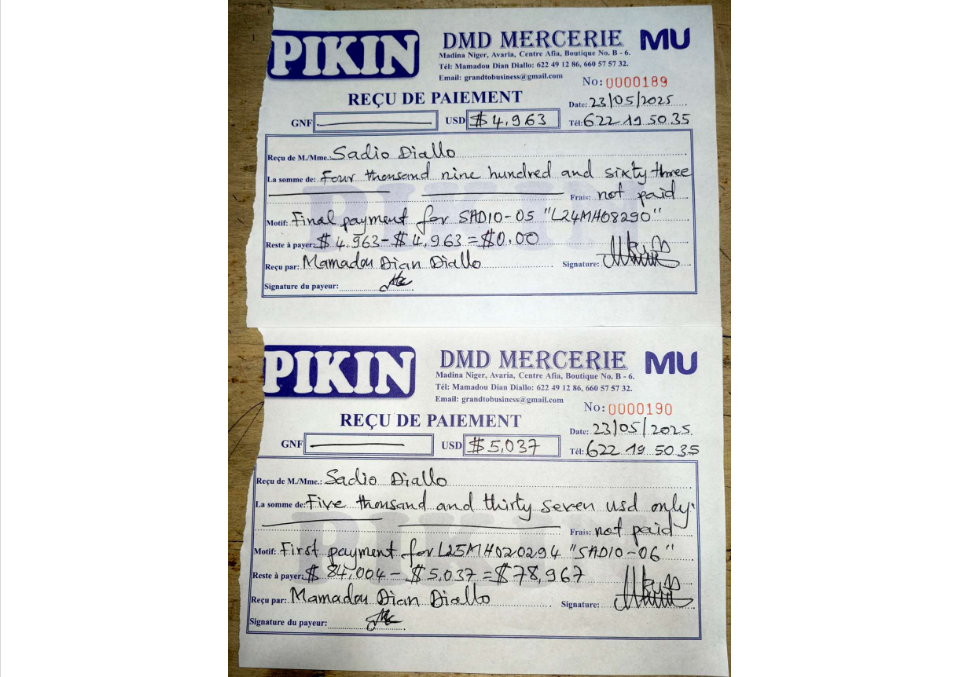 PIKIN
DMD MERCERIE MU
Madina Niger, Avaria, Centre Afia, Boutique No. B - 6.
Tél: Mamadou Dian Diallo: 622 49 12 86, 660 57 57 32.
Email: grandtobusiness@gmail.com
No: 0000189
REÇU DE PAIEMENT
Date: 23/05/2025
GNF USD $4,963
Tél: 622 19 50 35
Reçu de M./Mme.: Sadio Diallo
La somme de: Four thousand nine hundred and sixty three
Frais: not paid
Motif: Final payment for SADIO-05 "L24MH08290"
Reste à payer: $4,963-$4,963=$0.00
Reçu par: Mamadou Dian Diallo Signature:
Signature du payeur:
PIKIN
DMD MERCERIE MU
Madina Niger, Avaria, Centre Afia, Boutique No. B - 6.
Tél: Mamadou Dian Diallo: 622 49 12 86, 660 57 57 32.
Email: grandtobusiness@gmail.com
No: 0000190
REÇU DE PAIEMENT
Date: 23/05/2025
GNF USD $5,037
Tél: 622 19 50 35
Reçu de M./Mme.: Sadio Diallo
La somme de: Five thousand and thirty seven usd only.
Frais: not paid
Motif: First payment for L25MH020294 "SADIO-06"
Reste à payer: $84,004-$5,037=$78,967
Reçu par: Mamadou Dian Diallo Signature:
Signature du payeur: